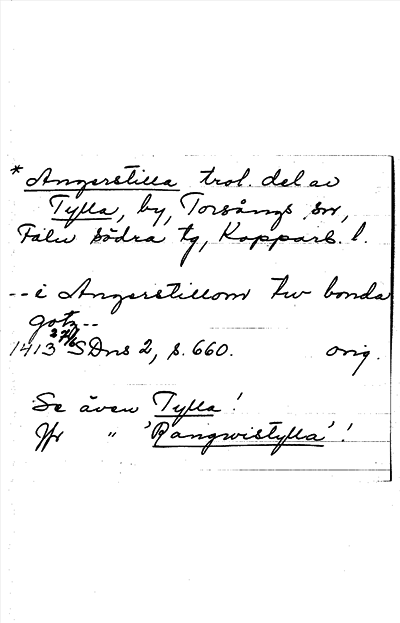 * Angerstilla trol. del av
Tylla, by, Torsångs sn,
Falu södra tg, Kopparb. l.
-- i Angerstillom tw bonda
gotz --
1413 27/6 SDns 2, s. 660. orig.
Se även Tylla!
Jfr " 'Rangwistylla'!